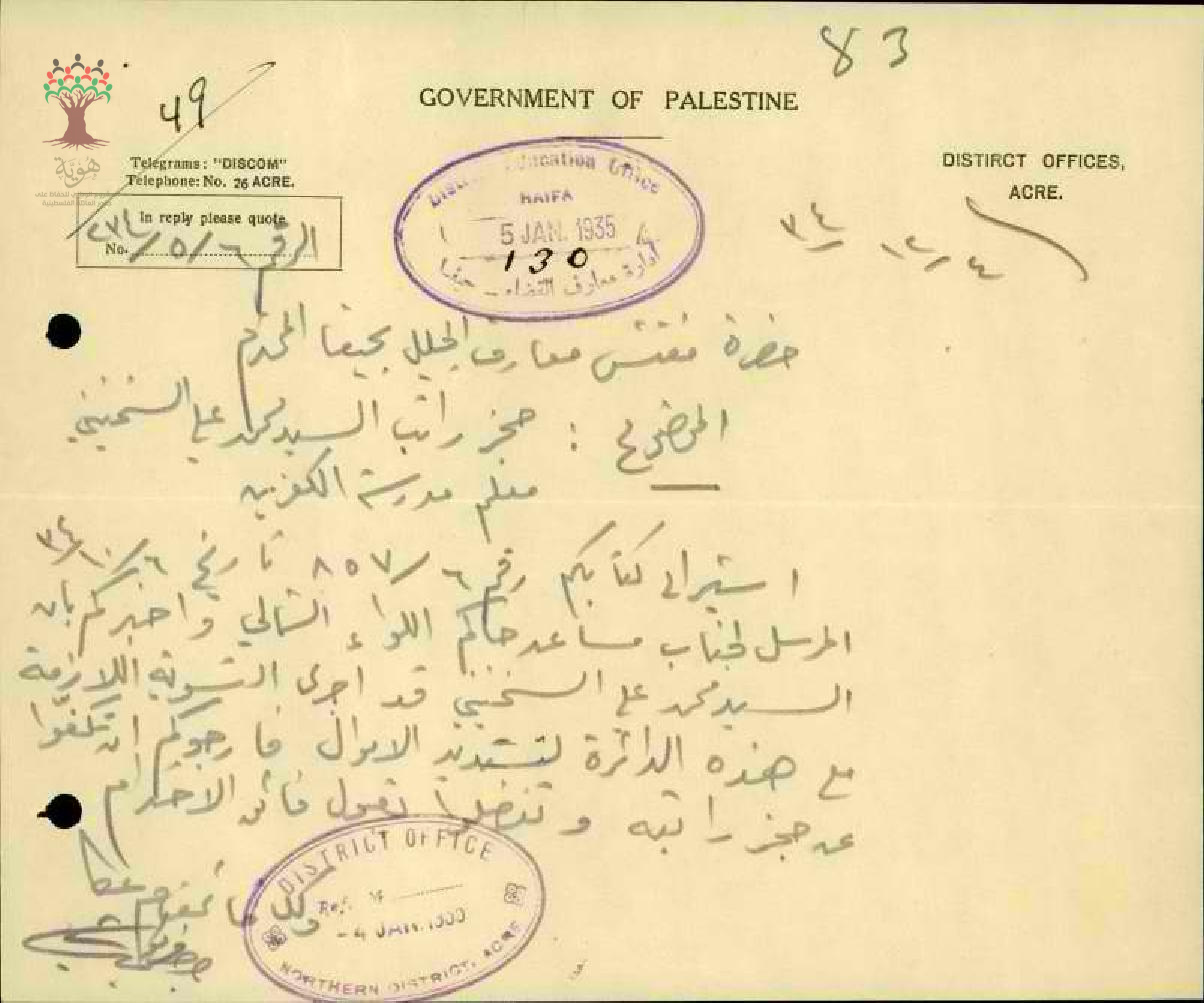 83
49
GOVERNMENT OF PALESTINE
Telegrams: "DISCOM"
Telephone: No. 26 ACRE.
DISTIRCT OFFICES,
ACRE.
In reply please quote
No. الرقم ٦/٥/٢٣٤
District Education Office
HAIFA
5 JAN. 1935
130
ادارة معارف القضاء - حيفا
٤/١٢/٣٤
حضرة مفتش معارف الجليل بحيفا المحترم
الموضوع : حجز راتب السيد محمد علي السخنيني
معلم مدرسة
اشير الى كتابكم رقم ٦/٨٥٧ تاريخ ٦/١٠/٣٤
المرسل لجناب مساعد حاكم اللواء الشمالي واخبركم بان
السيد محمد علي السخنيني قد اجرى التسوية اللازمة
مع هذه الدائرة لتسديد الاموال فارجوكم ان تكفوا
عن حجز راتبه وتفضلوا بقبول فائق الاحترام
قائمقام عكا
DISTRICT OFFICE
Ref. No
- 4 JAN. 1935
NORTHERN DISTRICT, ACRE
هوية